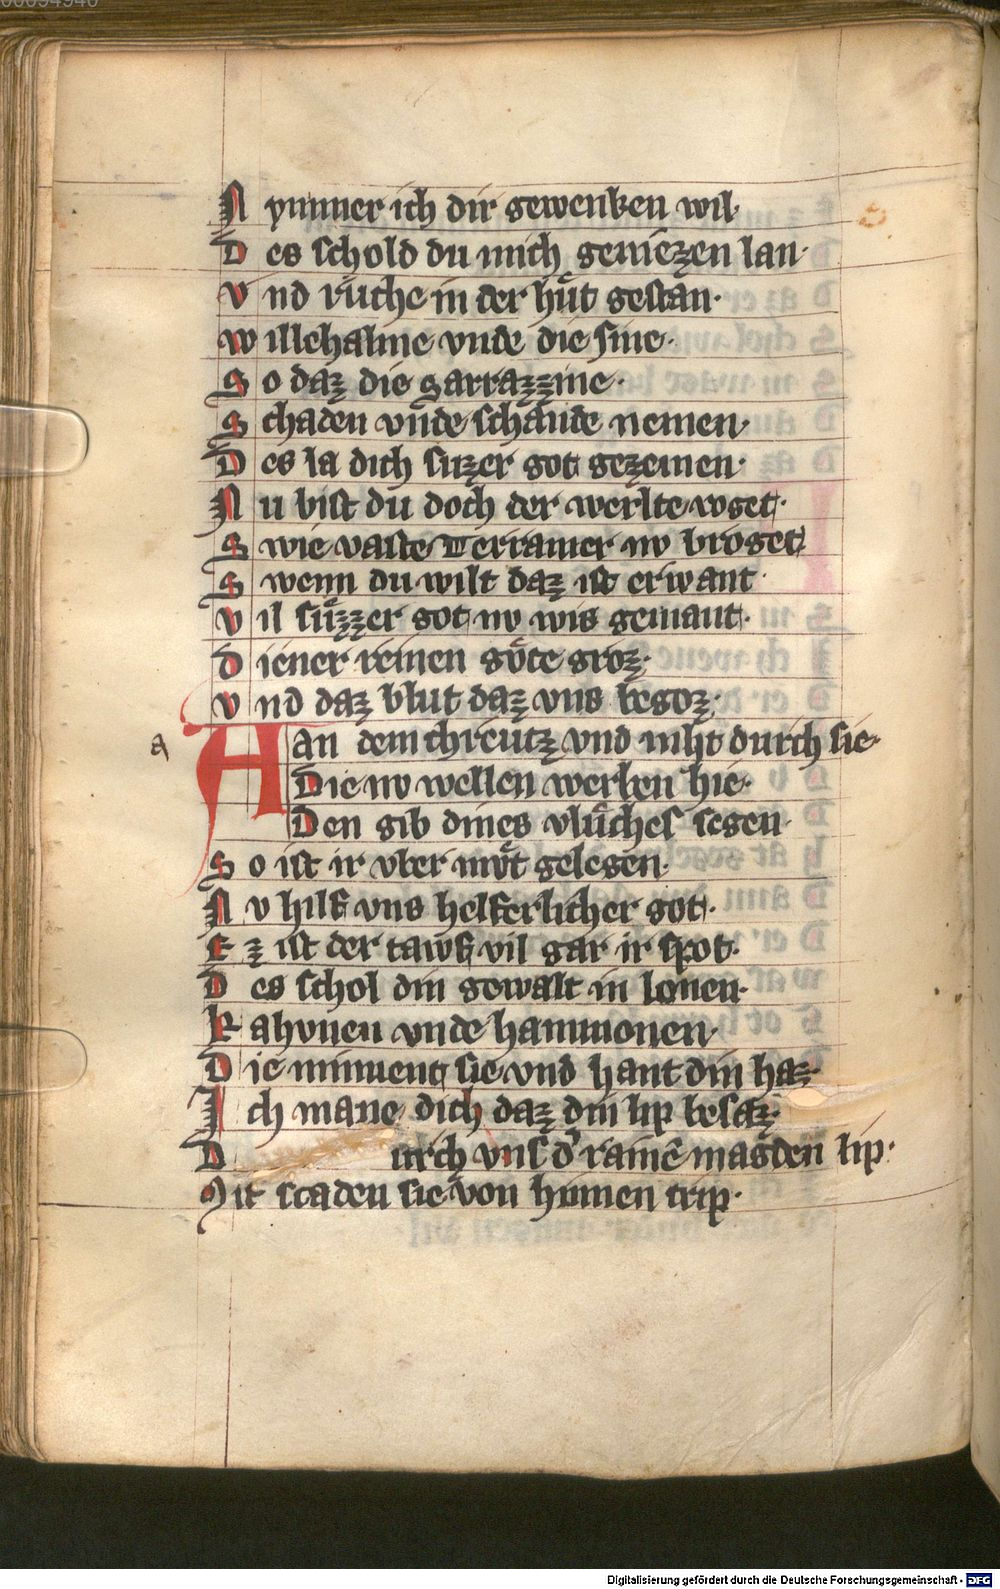 00094946
N ymmer ich dir gewenken wil·
D es schold du mich geniezen lan·
V nd rüche in der hůt gestan·
W illehalme vnde die sine·
S o daz die sarrazzine·
S chaden vnde schande nemen·
D es la dich suzer got gezemen·
N u bist du doch der werlte voget·
S wie vaste Terramer nv broget
S wenn du wilt daz ist erwant·
V il süzzer got nv wis gemant·
D iener reinen gŏte groz·
V nd daz blut daz vns begoz·
a
A an dem chreutz vnd niht durch sie·
Die nv wellen werben hie·
Den gib dines vlůches segen
S o ist ir vber mv̊t gelegen·
N v hilf vns helferlicher got·
E z ist der tawf vil gar ir spot·
D es schol din gewalt in lonen·
K ahvnen vnde hammonen·
D ie minnent sie vnd hant din haz·
I ch mane dich daz din lip besaz·
D urch vns d͛ rainē magden lip·
Mit scaden sie von hinnen trip·
Digitalisierung gefördert durch die Deutsche Forschungsgemeinschaft - DFG